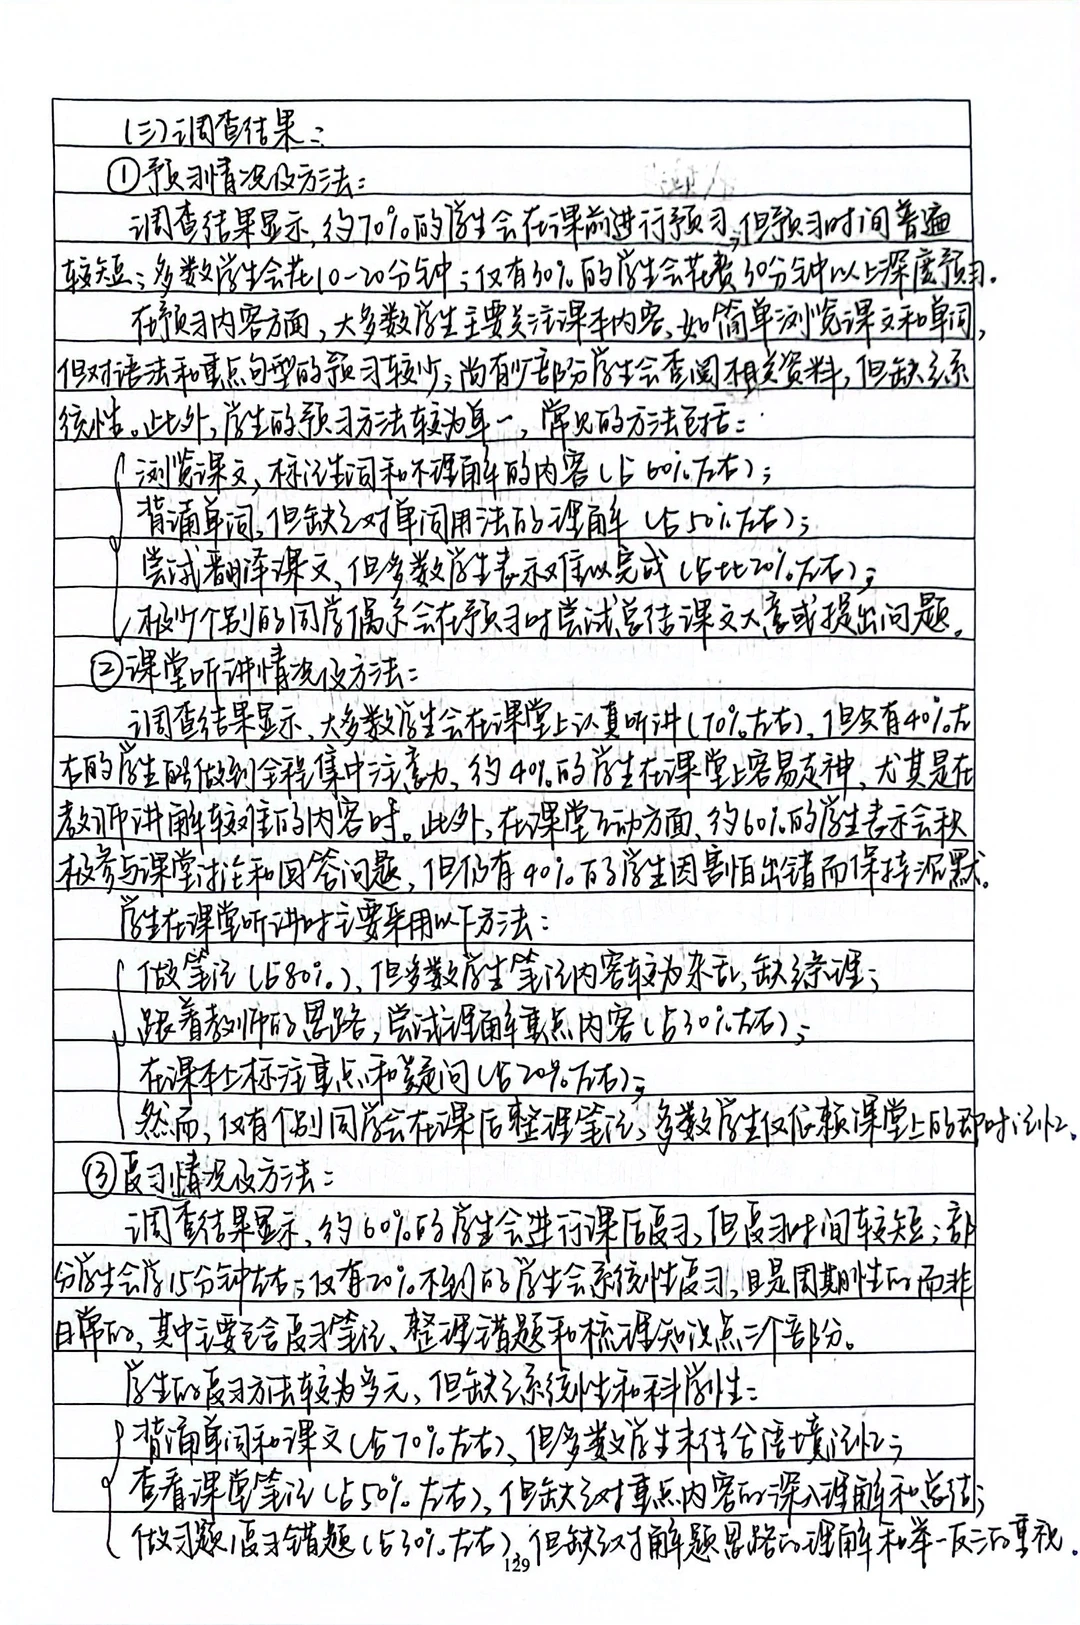 （三）调查结果：
①预习情况及方法：
调查结果显示，约70%的学生会在课前进行预习，但预习时间普遍
较短；多数学生会花10-20分钟；仅有30%的学生会花费30分钟以上深度预习。
在预习内容方面，大多数学生主要关注课本内容，如简单浏览课文和单词，
但对语法和重点句型的预习较少；尚有少部分学生会查阅相关资料，但缺乏系
统性。此外，学生的预习方法较为单一，常见的方法包括：
浏览课文，标注生词和不理解的内容（占60%左右）；
背诵单词，但缺乏对单词用法的理解（占50%左右）；
尝试翻译课文，但多数学生表示难以完成（占比20%左右）；
极少个别的同学偶尔会在预习时尝试总结课文大意或提出问题。
②课堂听讲情况及方法：
调查结果显示，大多数学生会在课堂上认真听讲（70%左右），但只有40%左
右的学生能做到全程集中注意力，约40%的学生在课堂上容易走神，尤其是在
教师讲解较难的内容时。此外，在课堂互动方面，约60%的学生表示会积
极参与课堂讨论和回答问题，但仍有40%的学生因害怕出错而保持沉默。
学生在课堂听讲时主要采用以下方法：
做笔记（占80%），但多数学生笔记内容较为杂乱，缺乏条理；
跟着教师的思路，尝试理解重点内容（占30%左右）；
在课本上标注重点和疑问（占20%左右）；
然而，仅有个别同学会在课后整理笔记，多数学生仅依赖课堂上的即时记忆。
③复习情况及方法：
调查结果显示，约60%的学生会进行课后复习，但复习时间较短；部
分学生会学15分钟左右；仅有20%不到的学生会系统性复习，且是周期性的而非
日常的，其中主要包含复习笔记、整理错题和梳理知识点三个部分。
学生的复习方法较为多元，但缺乏系统性和科学性：
背诵单词和课文（占70%左右），但多数学生未结合语境记忆；
查看课堂笔记（占50%左右），但缺乏对重点内容的深入理解和总结；
做习题，复习错题（占30%左右），但缺乏对解题思路的理解和举一反三的重视。
129